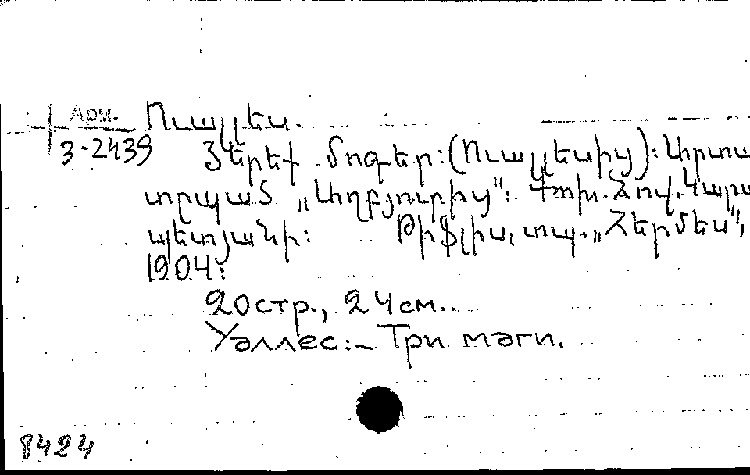 Арм.
3-2439
Ուալլես.
Երեք մոգեր: (Ուալլեսից): Արտա
տըպած „Աղբյուրից": Թ­տխ. Յով. Կարա
պետյանի: Թիֆլիս, տպ. „Հերմես",
1904:
20стр., 24см..
Уэллес:- Три маги.
8424